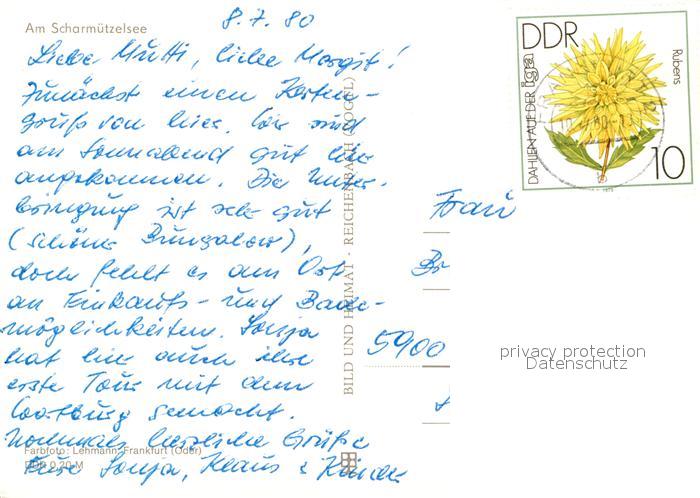 Am Scharmützelsee
8.7.80
Liebe Mutti, liebe Margit!
Zunächst einen Karten-
gruß von hier. Wir sind
am Sonnabend gut hier
angekommen. Die Unter-
bringung ist sehr gut
(schöner Bungalow),
doch fehlt es am Ort
an Einkaufs- und Bade-
möglichkeiten. Sonja
hat hier auch ihre
erste Tour mit dem
Wartburg gemacht.
Nochmals herzliche Grüße
Eure Sonja, Klaus &
Farbfoto: Lehmann, Frankfurt (Oder)
DDR 0,20 M
BILD UND HEIMAT · REICHENBACH (VOGTL)
DDR
DAHLIEN AUF DER iga
Rubens
10
1979
Frau
5900
privacy protection
Datenschutz